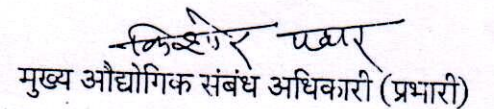 किशोर पवार
मुख्य औद्योगिक संबंध अधिकारी (प्रभारी)